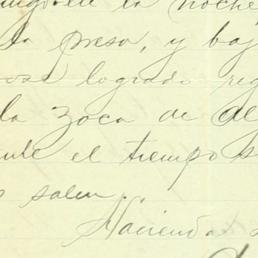 la noche
la presa, y baj
logrado reg
la zoca de al
el tiempo s
salen..
Hacienda